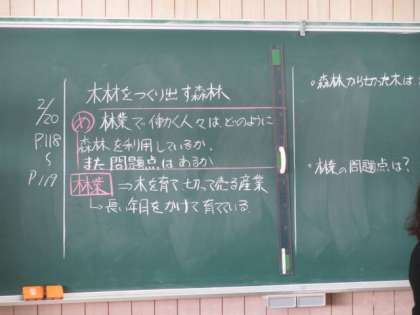 2/20
P118
〜
P119
木材をつくり出す森林
め 林業で働く人々は、どのように
森林を利用しているか。
また問題点はあるか
林業 ⇒木を育て切って売る産業
↳長い年月をかけて育てている。
・森林から切った木は
・林業の問題点は?